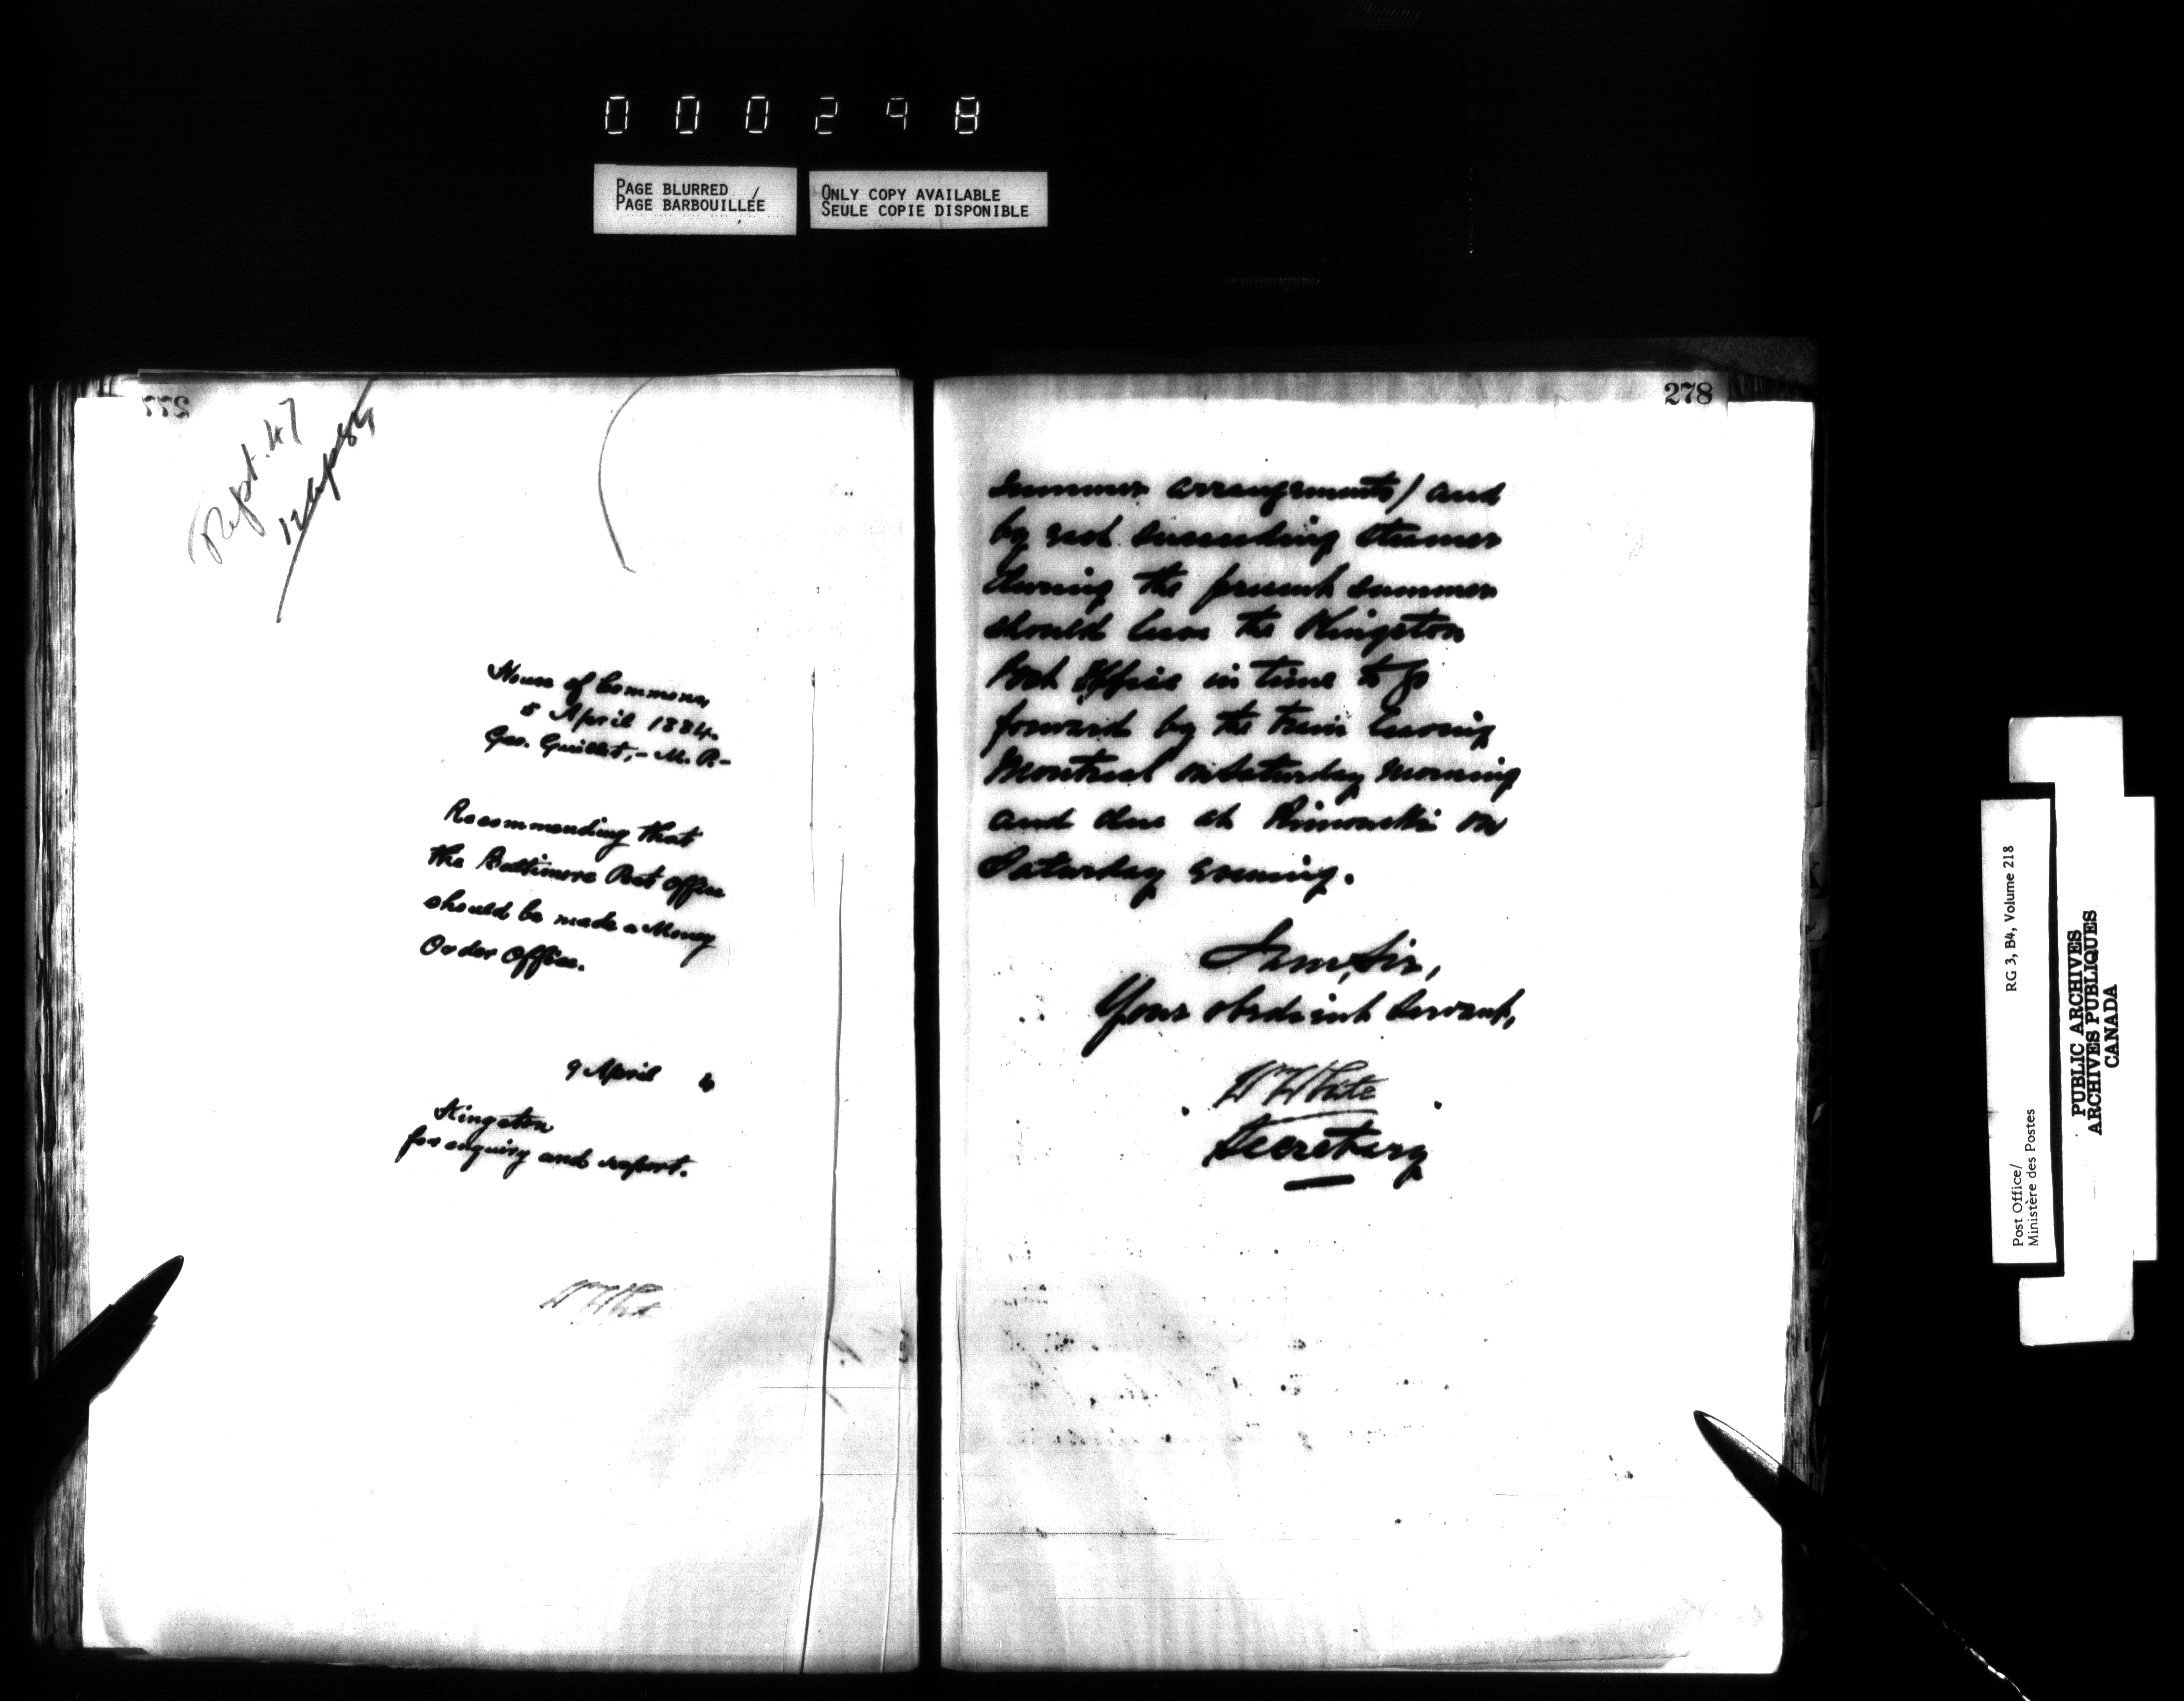 000298
PAGE BLURRED
PAGE BARBOUILLÉE
ONLY COPY AVAILABLE
SEULE COPIE DISPONIBLE
277
Rept. 47
12 Apr 84
House of Commons,
5 April 1884.
Geo. Guillet, - M. P. -
Recommending that
the Baltimore Post office
should be made a Money
Order Office.
9 April 4
Kingston
for enquiry and report.
WmWhite
278
Summer arrangements) and
by each succeeding steamer
during the present summer
should leave the Kingston
Post Office in time to go
forward by the train leaving
Montreal on Saturday morning
and due at Rimouski on
Saturday evening.
I am, Sir,
Your obedient Servant,
WmWhite
Secretary
Post Office/
Ministère des Postes
RG 3, B4, Volume 218
PUBLIC ARCHIVES
ARCHIVES PUBLIQUES
CANADA